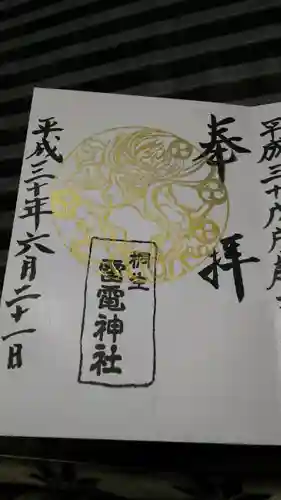 奉拝
桐生
雷電神社
平成三十年六月二十一日
平成三十